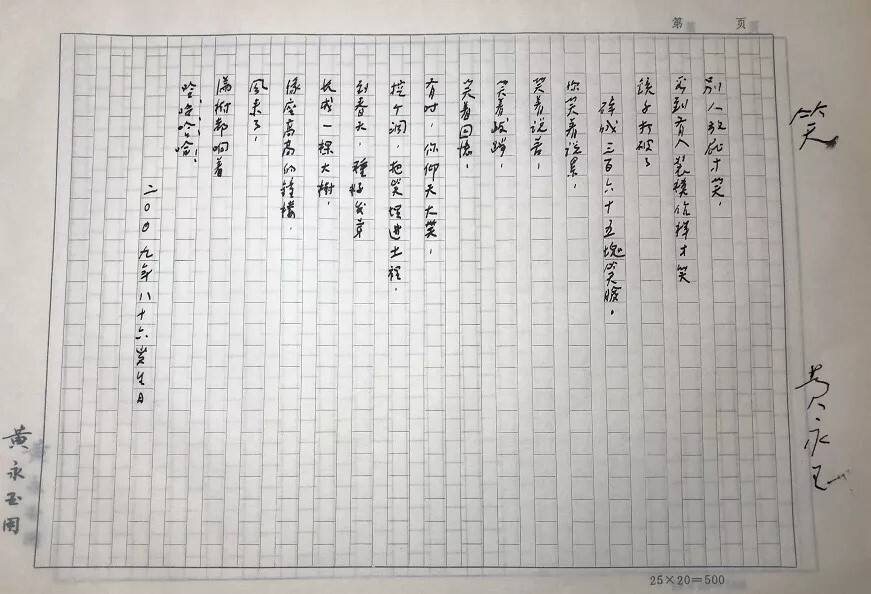 第 页
笑
黄永玉
别人放屁才笑，
看到有人装模作样才笑
镜子打破了
碎成三百六十五塊笑脸。
你笑着说累，
笑着说苦，
笑着跋涉，
笑着回憶。
有时，你仰天大笑，
挖个洞，把笑埋进土裡。
到春天，種籽发芽
长成一棵大樹，
像座高高的鐘樓，
風来了，
满樹都响着
哈！哈！哈！哈！
二〇〇九年八十六岁生日
黄永玉用
25×20=500